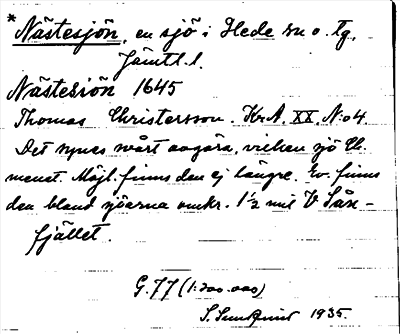 * Nästesjön, en sjö i Hede sn o. tg,
Jämtl.l.
Nästesiön 1645
Thomas Christersson. Kr.A. XX. N:o 4.
Det synes svårt avgöra, vilken sjö Ch.
menat. Möjl. finns den ej längre. Ev. finns
den bland sjöarna omkr. 1½ mil V Sån-
fjället.
G.77 (1:200.000)
S. Sundqvist 1935.